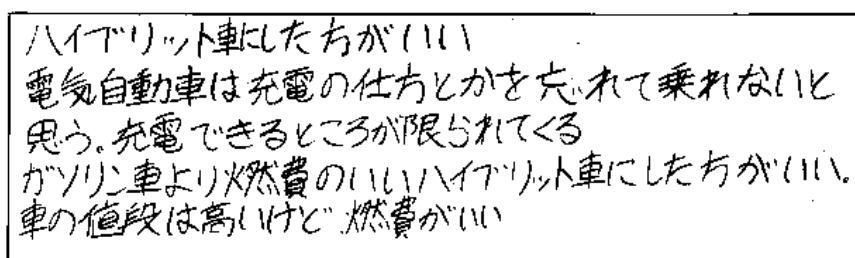 ハイブリット車にした方がいい
電気自動車は充電の仕方とかを忘れて乗れないと
思う。充電できるところが限られてくる
ガソリン車より燃費のいいハイブリット車にした方がいい。
車の値段は高いけど燃費がいい